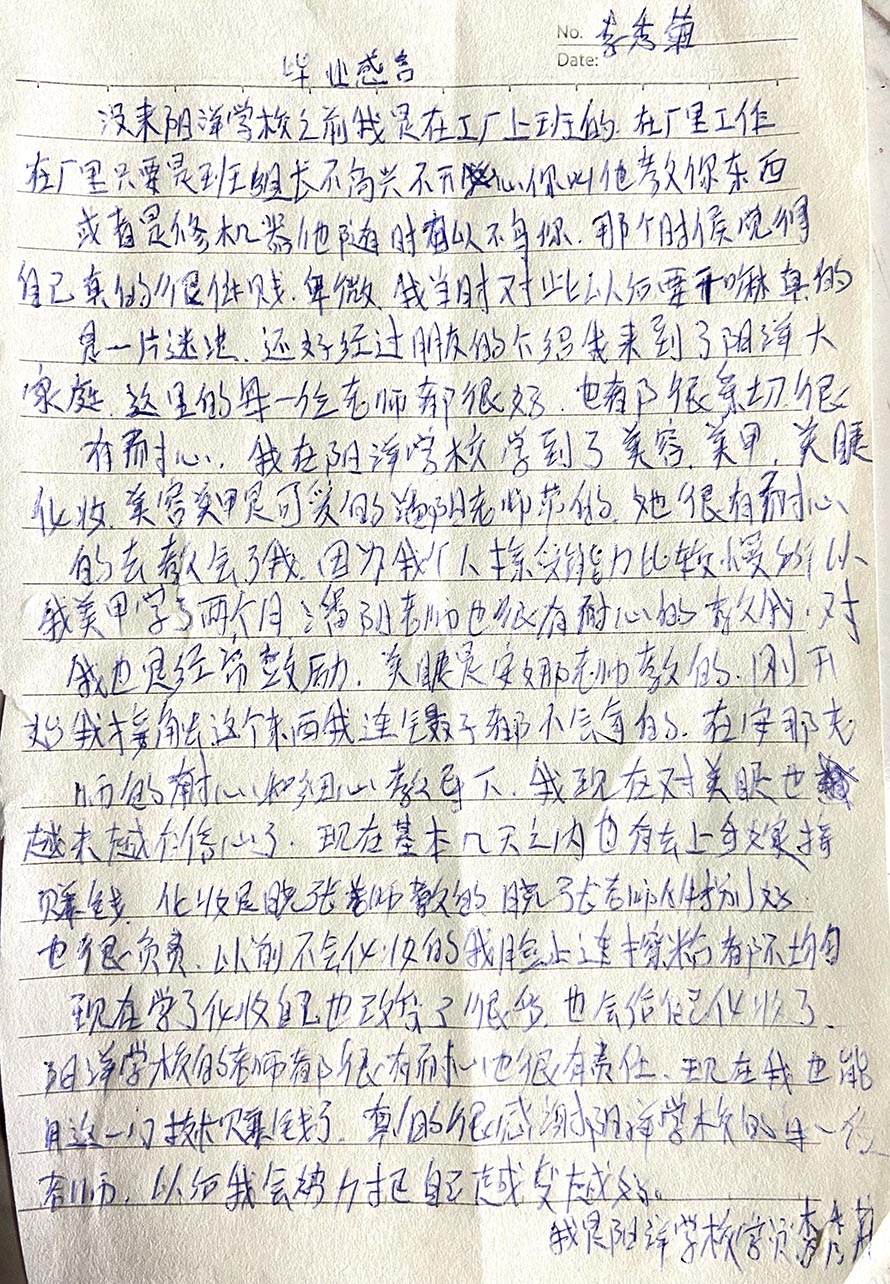 No. 李秀菊
Date:
毕业感言
没来阳洋学校之前我是在工厂上班的. 在厂里工作
在厂里只要是班组长不高兴不开心你叫他教你东西
或者是修机器他随时有以不鸟你. 那个时候觉得
自己真的很低贱. 卑微. 我当时对此以后要干嘛真的
是一片迷茫. 还好经过朋友的介绍我来到了阳洋大
家庭. 这里的每一位老师都很好. 也都很亲切很
有耐心. 我在阳洋学校学到了美容. 美甲. 美睫
化妆. 美容美甲是可爱的潘阳老师带的. 她很有耐心
的去教会了我. 因为我个人接受能力比较慢所以
我美甲学了两个月 潘阳老师也很有耐心的教我. 对
我也是经常鼓励. 美睫是安娜老师教的. 刚开
始我接触这个东西我连镊子都不会拿的. 在安那老
师的耐心和细心教导下. 我现在对美睫也
越来越有信心了. 现在基本几天之内也有去上手嫁接
赚钱. 化妆是晓张老师教的 晓张老师特别好.
也很负责. 以前不会化妆的我脸上连擦粉都不均匀
现在学了化妆自己也改变了很多. 也会给自己化妆了.
阳洋学校的老师都很有耐心也很有责任. 现在我也能
用这一门技术赚钱了. 真的很感谢阳洋学校的每一位
老师. 以后我会努力把自己越变越好。
我是阳洋学校学员李秀菊